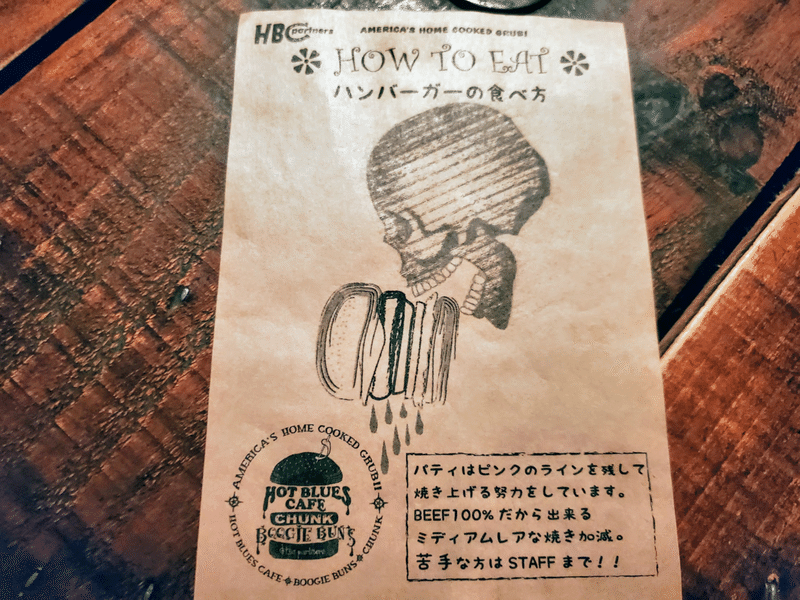 HBC partners
AMERICA'S HOME COOKED GRUB!
HOW TO EAT
ハンバーガーの食べ方
AMERICA'S HOME COOKED GRUB!!
HOT BLUES
CAFE
CHUNK
BOOGIE BUNS
HOT BLUES CAFE BOOGIE BUNS CHUNK
パティはピンクのラインを残して
焼き上げる努力をしています。
BEEF100%だから出来る
ミディアムレアな焼き加減。
苦手な方はSTAFFまで!!